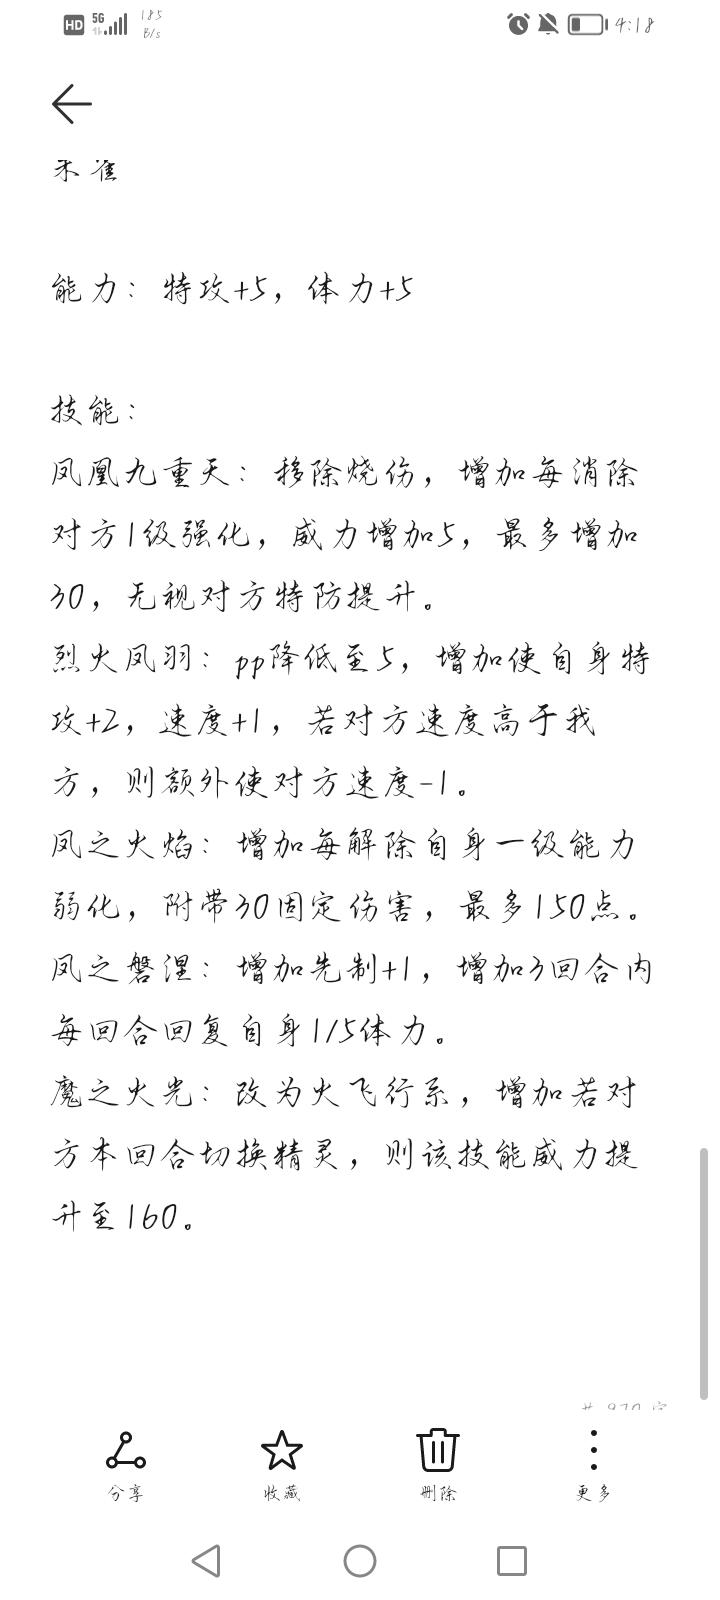 HD 5G 185 B/s 4:18
朱雀
能力：特攻+5，体力+5
技能：
凤凰九重天：移除烧伤，增加每消除
对方1级强化，威力增加5，最多增加
30，无视对方特防提升。
烈火凤羽：pp降低至5，增加使自身特
攻+2，速度+1，若对方速度高于我
方，则额外使对方速度-1。
凤之火焰：增加每解除自身一级能力
弱化，附带30固定伤害，最多150点。
凤之磐涅：增加先制+1，增加3回合内
每回合回复自身1/5体力。
魔之火光：改为火飞行系，增加若对
方本回合切换精灵，则该技能威力提
升至160。
分享 收藏 删除 更多